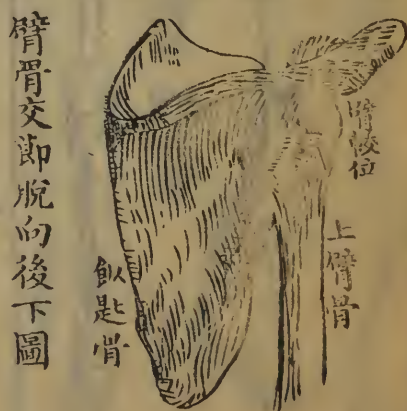 臂骨交節脫向後下圖
臂骹位
上臂骨
飯匙骨